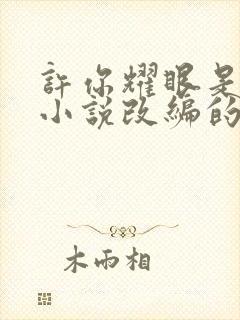 許你耀眼是
小說改編的
木雨相